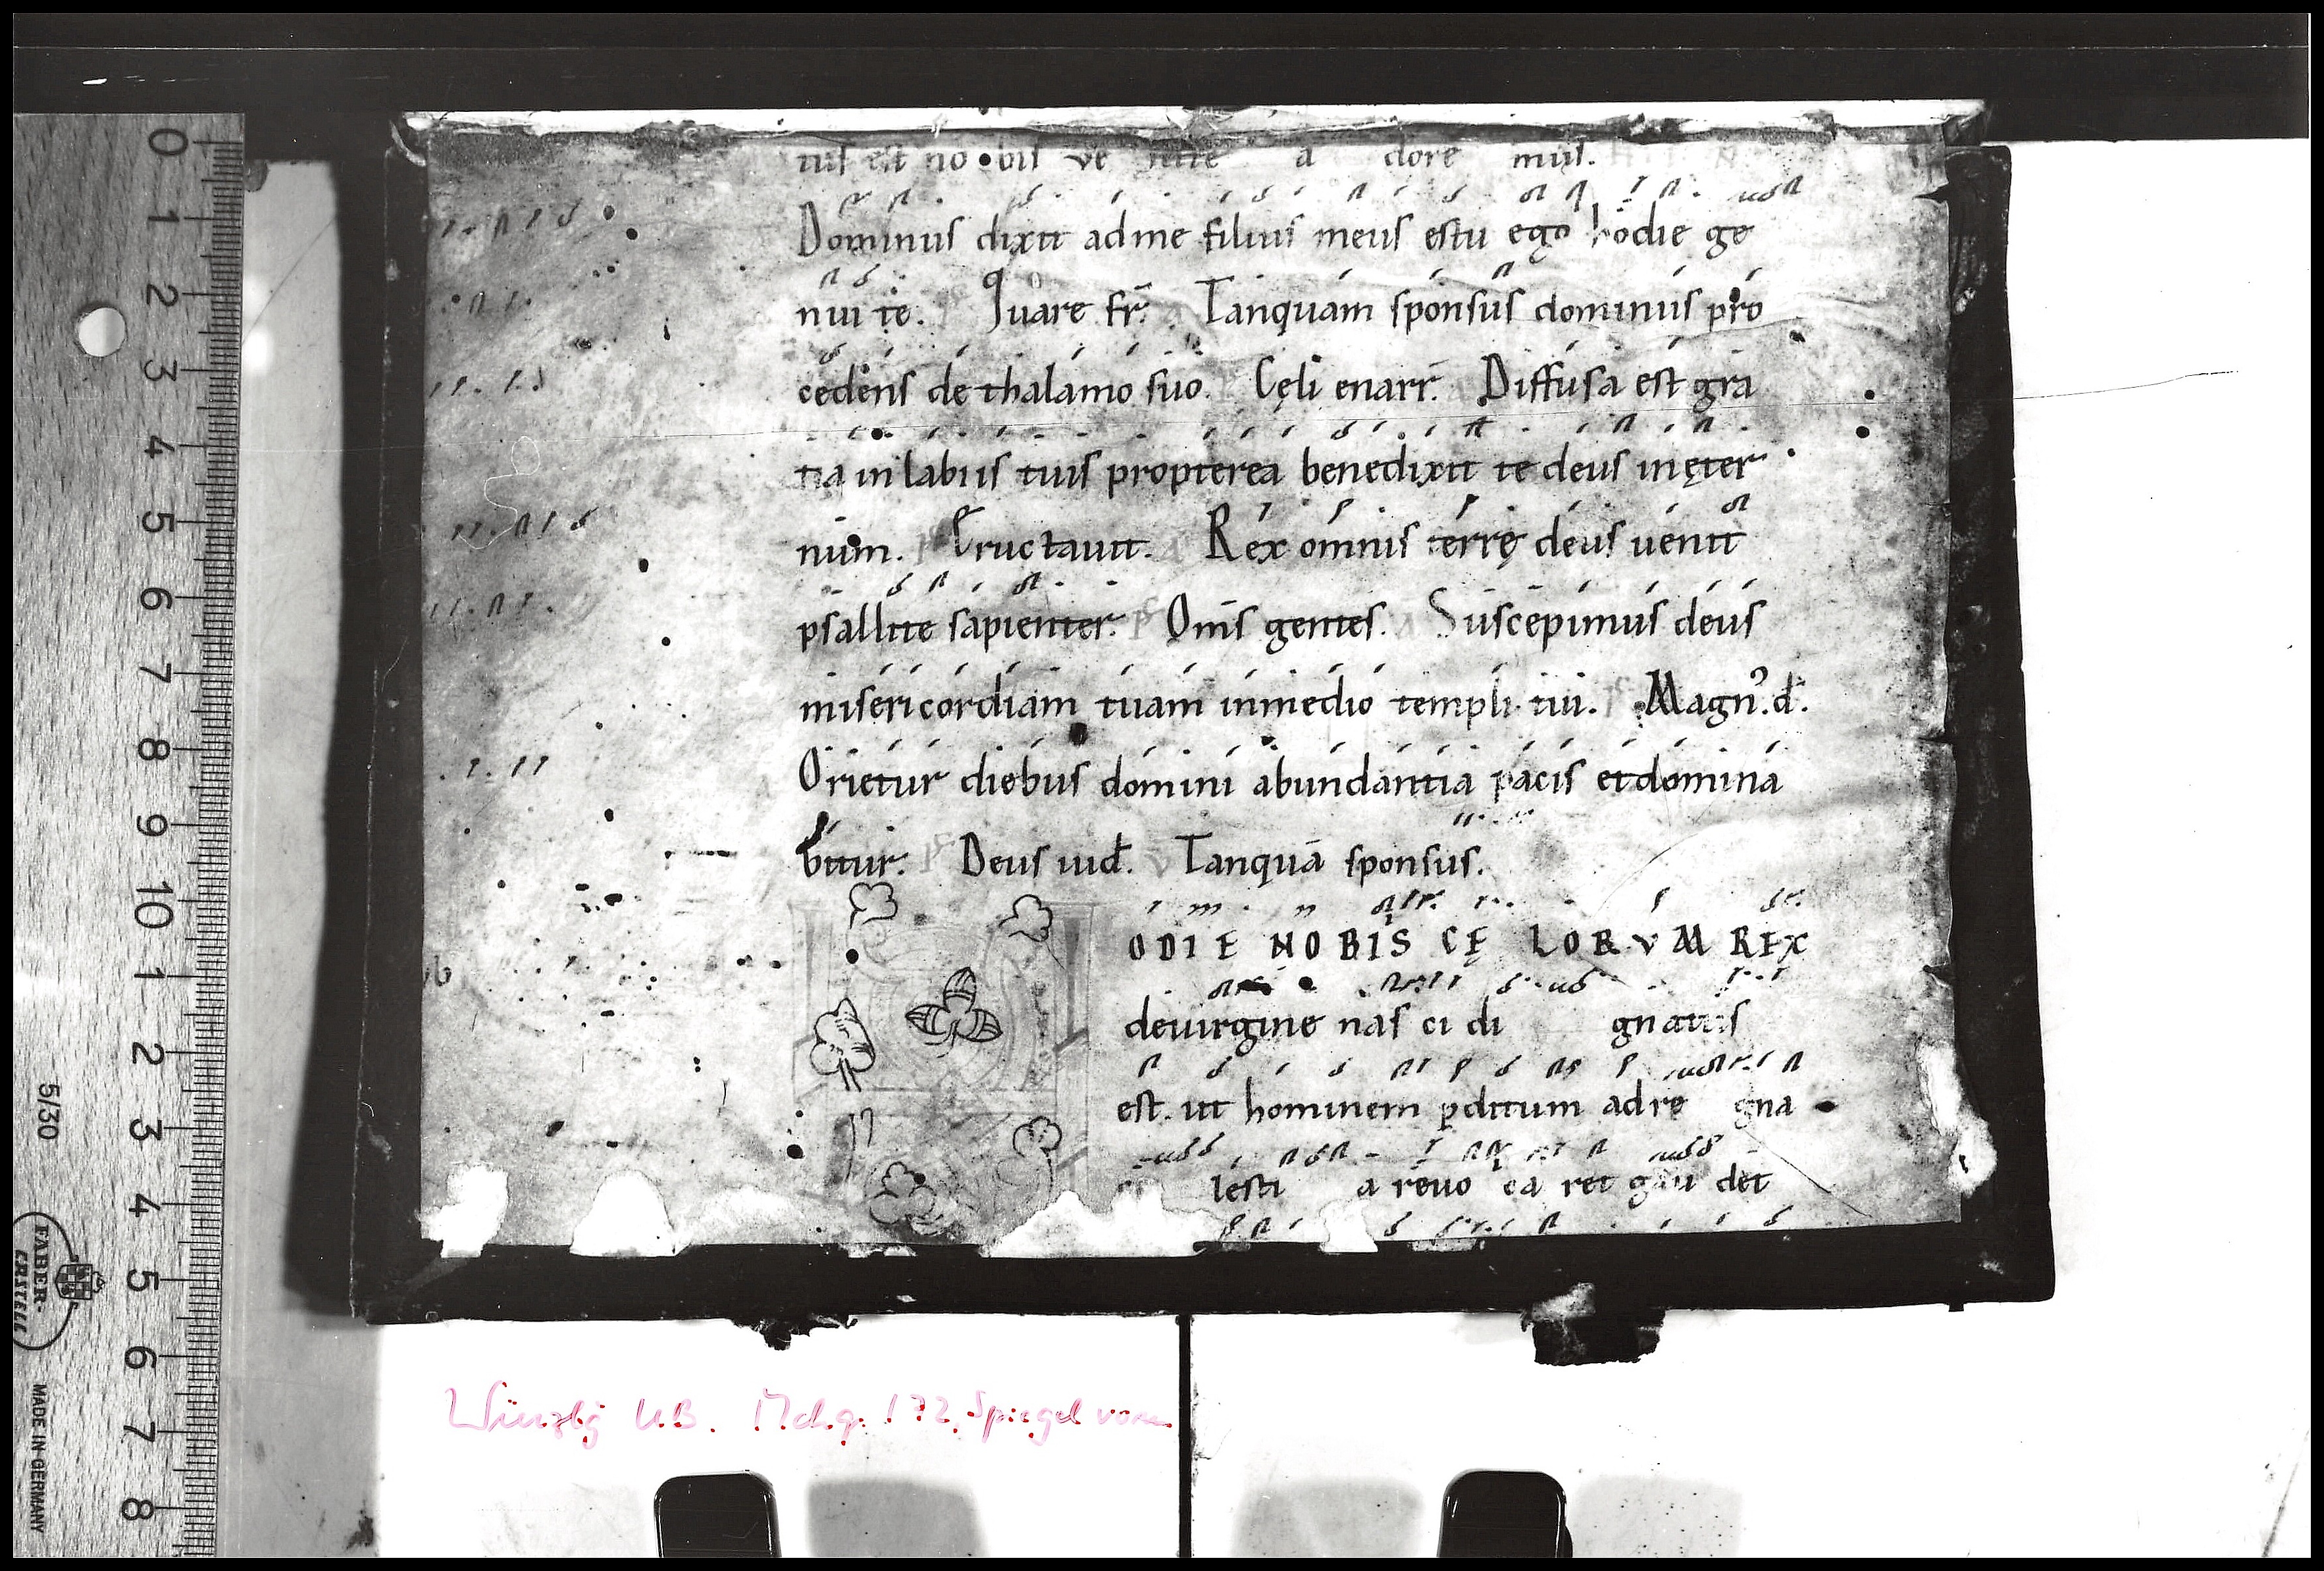 tus est no bis ve nite a dore mus.
Dominus dixit ad me filius meus es tu ego hodie ge
nui te. Quare fr̄. Tanquam sponsus dominus pro
cedens de thalamo suo. Cęli enarr̄. Diffusa est gra
tia in labiis tuis propterea benedixit te deus in ęter
num. Eructauit. Rex omnis terrę deus uenit
psallite sapienter. Om̄s gentes. Suscepimus deus
misericordiam tuam in medio templi tui. Magn᾿. d̄.
Orietur diebus domini abundantia pacis et domina
bitur. Deus iud̄. Tanquā sponsus.
ODIE NOBIS CĘ LORVM REX
de uirgine nas ci di gnatus
est. ut hominem pditum ad re gna
lesti a reuo ca ret gau det
0 1 2 3 4 5 6 7 8 9 10 1 2 3 4 5 6 7 8
5/30
FABER-
CASTELL
MADE IN GERMANY
Würzbg UB. M.ch.q. 172, Spiegel vorn